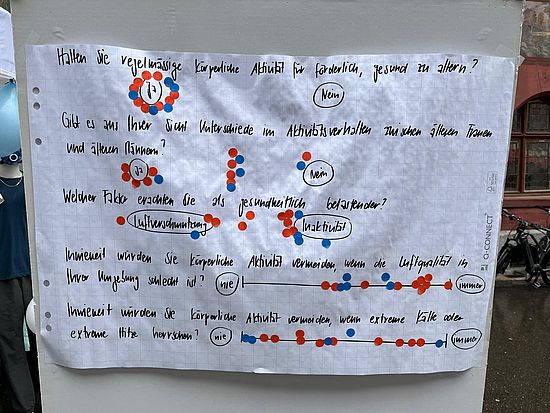 Halten Sie regelmässige körperliche Aktivität für förderlich, gesund zu altern?
Ja
Nein
Gibt es aus Ihrer Sicht Unterschiede im Aktivitätsverhalten zwischen älteren Frauen
und älteren Männern?
Ja
Nein
Welcher Faktor erachten Sie als gesundheitlich belastender?
Luftverschmutzung
Inaktivität
Inwieweit würden Sie körperliche Aktivität vermeiden, wenn die Luftqualität in
Ihrer Umgebung schlecht ist? nie immer
Inwieweit würden Sie körperliche Aktivität vermeiden, wenn extreme Kälte oder
extreme Hitze herrschen? nie immer
Q-CONNECT